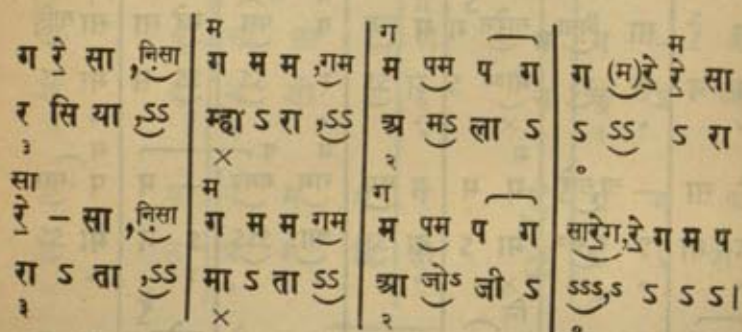 म ग म
ग रे॒ सा ,नि़सा | ग म म ,गम | म पम प ग | ग (म)रे॒ रे॒ सा
र सि या ,ऽऽ | म्हा ऽ रा ,ऽऽ | अ मऽ ला ऽ | ऽ ऽऽ ऽ रा
३ × २ ०
सा म ग
रे॒ – सा ,नि़सा | ग म म गम | म पम प ग | सारे॒ग,रे॒ ग म प
रा ऽ ता ,ऽऽ | मा ऽ ता ऽऽ | आ जोऽ जी ऽ | ऽऽऽ,ऽ ऽ ऽ ऽ।
३ × २ ०